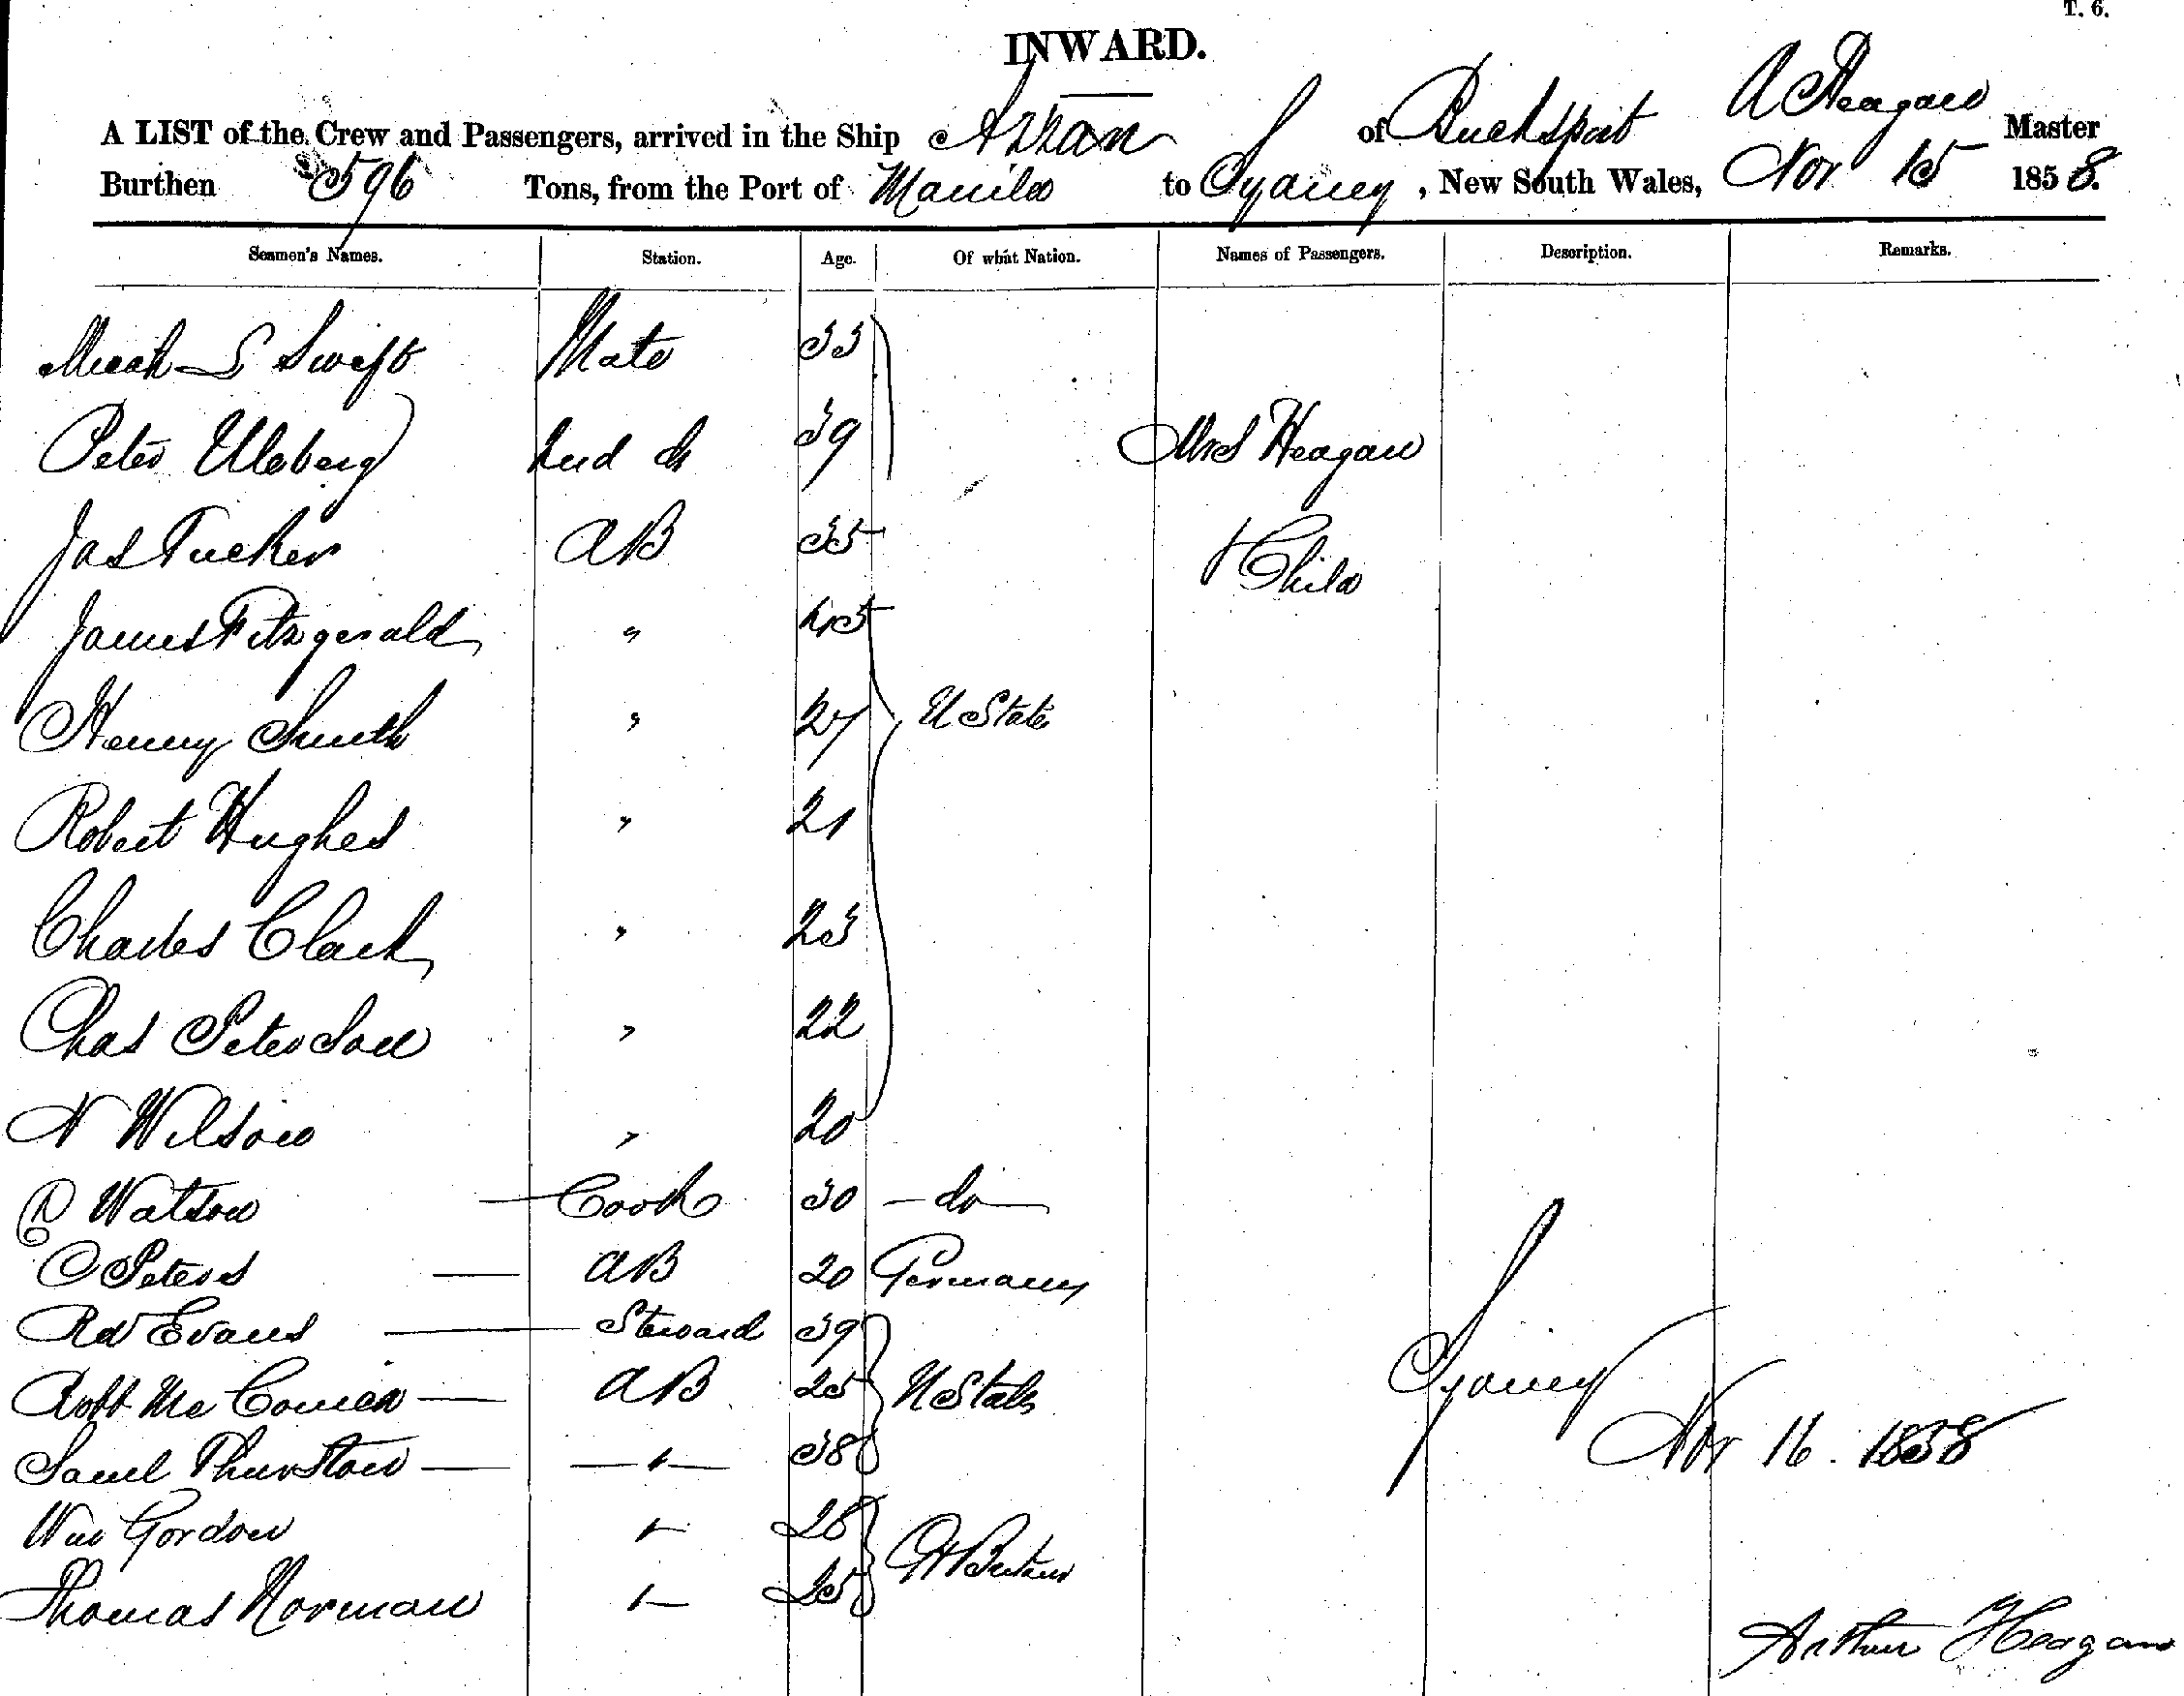 T. 6.
INWARD.
A LIST of the Crew and Passengers, arrived in the Ship Arran of Bucksport A Heagan Master
Burthen 596 Tons, from the Port of Manila to Sydney, New South Wales, Nov 15 1858.
Seamen's Names. Station. Age. Of what Nation. Names of Passengers. Description. Remarks.
S Swift Mate 33
Peter Uleberg 2nd do 39 Mrs Heagan
Jas Tucker AB 35 + Child
James Fitzgerald " 45
Henry Smith " 27 U States
Robert Hughes " 21
Charles Clark " 23
Chas Peterson " 22
N Wilson " 20
Watson Cook 30 — do —
C Peters — AB 20 Germany
Rd Evans — Steward 39
Robt Mc — AB 25 U States
Saml Thurston — " 38
Wm Gordon " 28
Thomas Norman " 25 Gt Britain
Sydney
Nov 16. 1858
Arthur Heagan